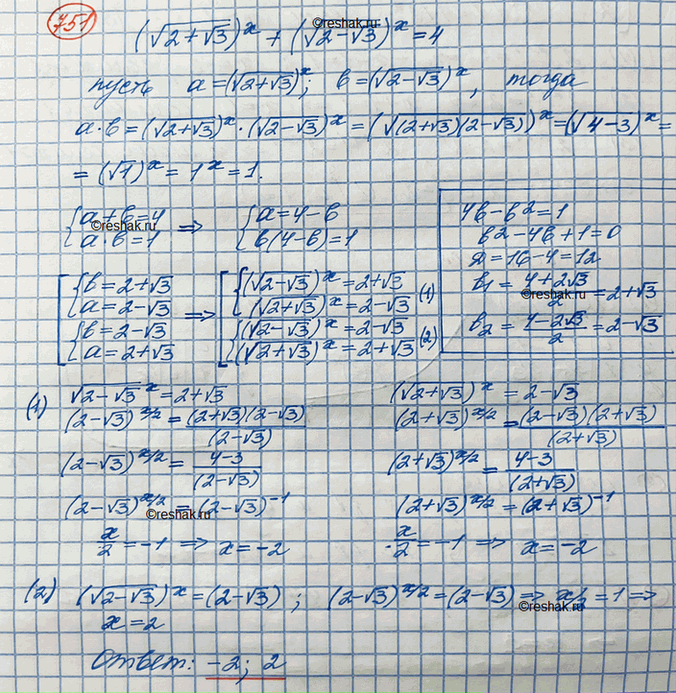 751
©reshak.ru
(√(2+√3))^x + (√(2-√3))^x = 4
пусть a=(√(2+√3))^x; b=(√(2-√3))^x, тогда
a·b=(√(2+√3))^x·(√(2-√3))^x=(√((2+√3)(2-√3)))^x=(√(4-3))^x=
=(√1)^x=1^x=1.
{a+b=4 ⇒ {a=4-b
{a·b=1 {b(4-b)=1
©reshak.ru
4b-b²=1
b²-4b+1=0
D=16-4=12
b₁=(4+2√3)/2=2+√3
©reshak.ru
b₂=(4-2√3)/2=2-√3
[{b=2+√3 [{(√(2-√3))^x=2+√3
{a=2-√3 {(√(2+√3))^x=2-√3 (1)
{b=2-√3 ⇒ {(√(2-√3))^x=2-√3
{a=2+√3 {(√(2+√3))^x=2+√3 (2)
(1) √(2-√3)^x=2+√3
(2-√3)^(x/2)=((2+√3)(2-√3))/(2-√3)
(2-√3)^(x/2)=(4-3)/(2-√3)
(2-√3)^(x/2)=(2-√3)^-1
©reshak.ru
x/2=-1 ⇒ x=-2
(√(2+√3))^x=2-√3
(2+√3)^(x/2)=((2-√3)(2+√3))/(2+√3)
(2+√3)^(x/2)=(4-3)/(2+√3)
(2+√3)^(x/2)=(2+√3)^-1
x/2=-1 ⇒ x=-2
(2) (√(2-√3))^x=(2-√3); (2-√3)^(x/2)=(2-√3)⇒ x/2=1⇒
©reshak.ru
x=2
Ответ: -2; 2